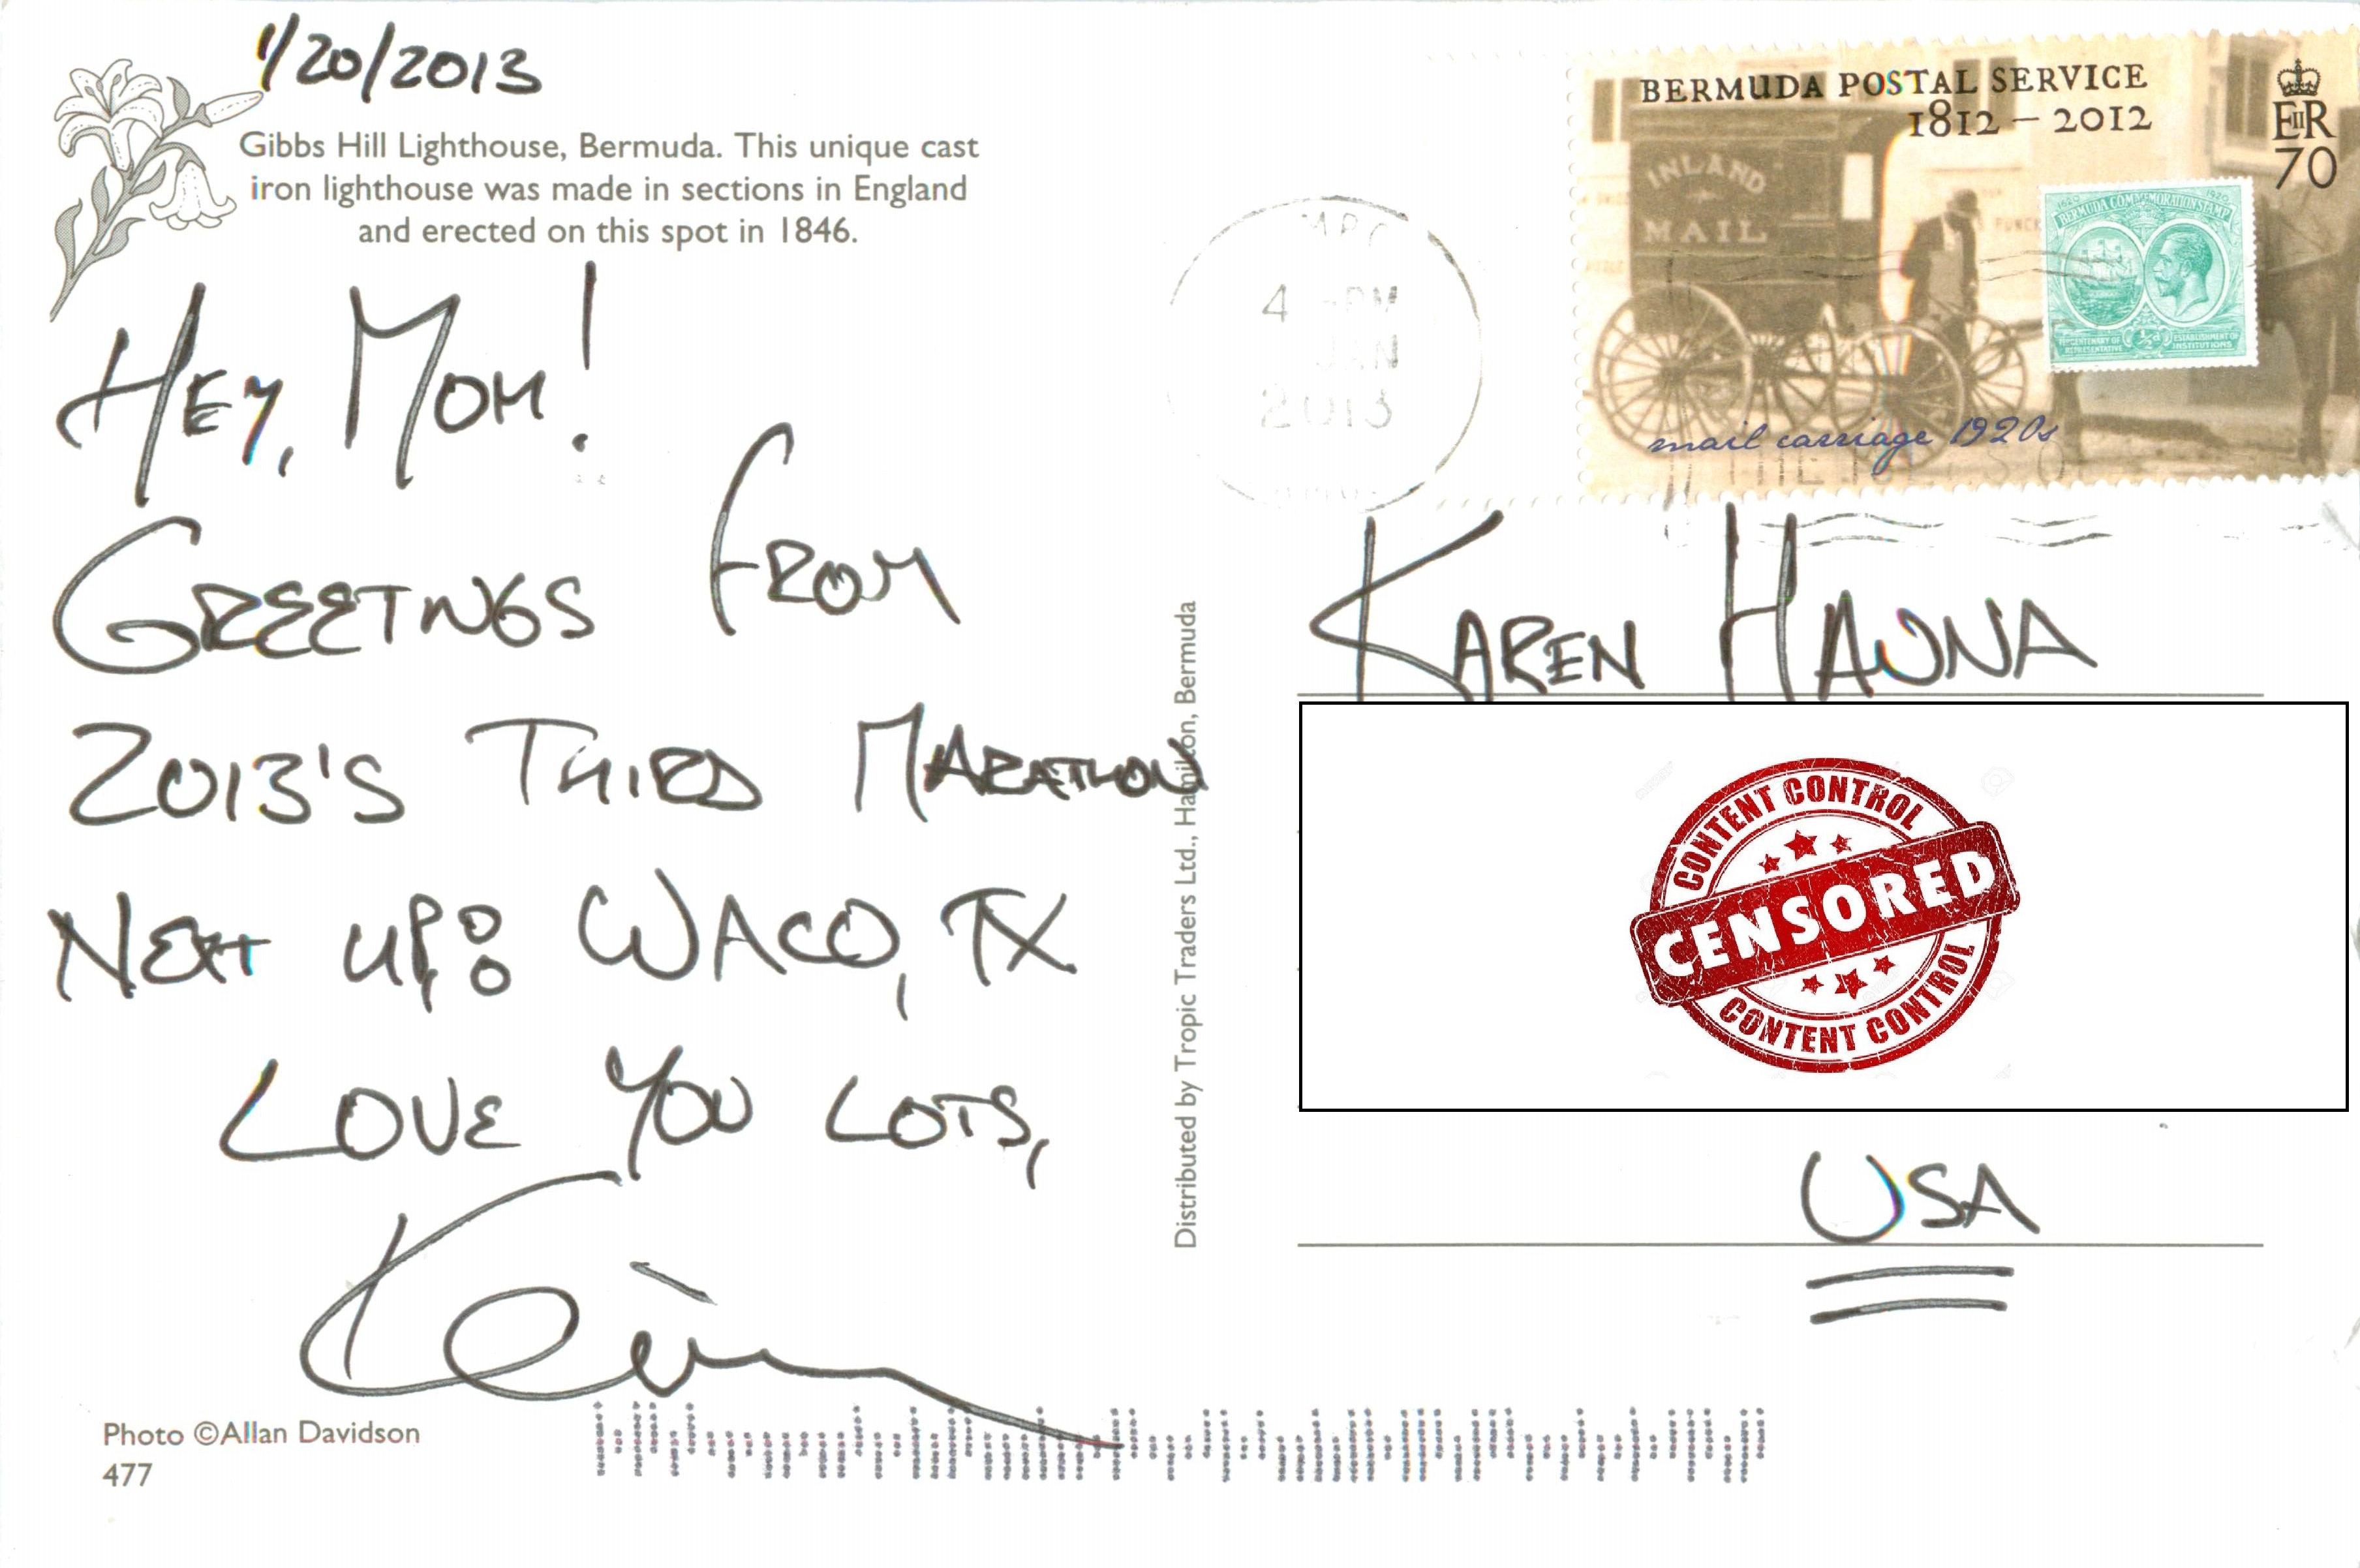 1/20/2013
Gibbs Hill Lighthouse, Bermuda. This unique cast
iron lighthouse was made in sections in England
and erected on this spot in 1846.
HEY, MOM!
GREETINGS FROM
2013'S THIRD MARATHON
NEXT UP: WACO, TX
LOVE YOU LOTS,
Photo ©Allan Davidson
477
Distributed by Tropic Traders Ltd., Hamilton, Bermuda
4 PM
JAN
2013
BERMUDA POSTAL SERVICE
1812 – 2012
EIIR
70
INLAND
MAIL
BERMUDA COMMEMORATION STAMP
mail carriage 1920s
KAREN HAUNA
CONTENT CONTROL
CENSORED
CONTENT CONTROL
USA